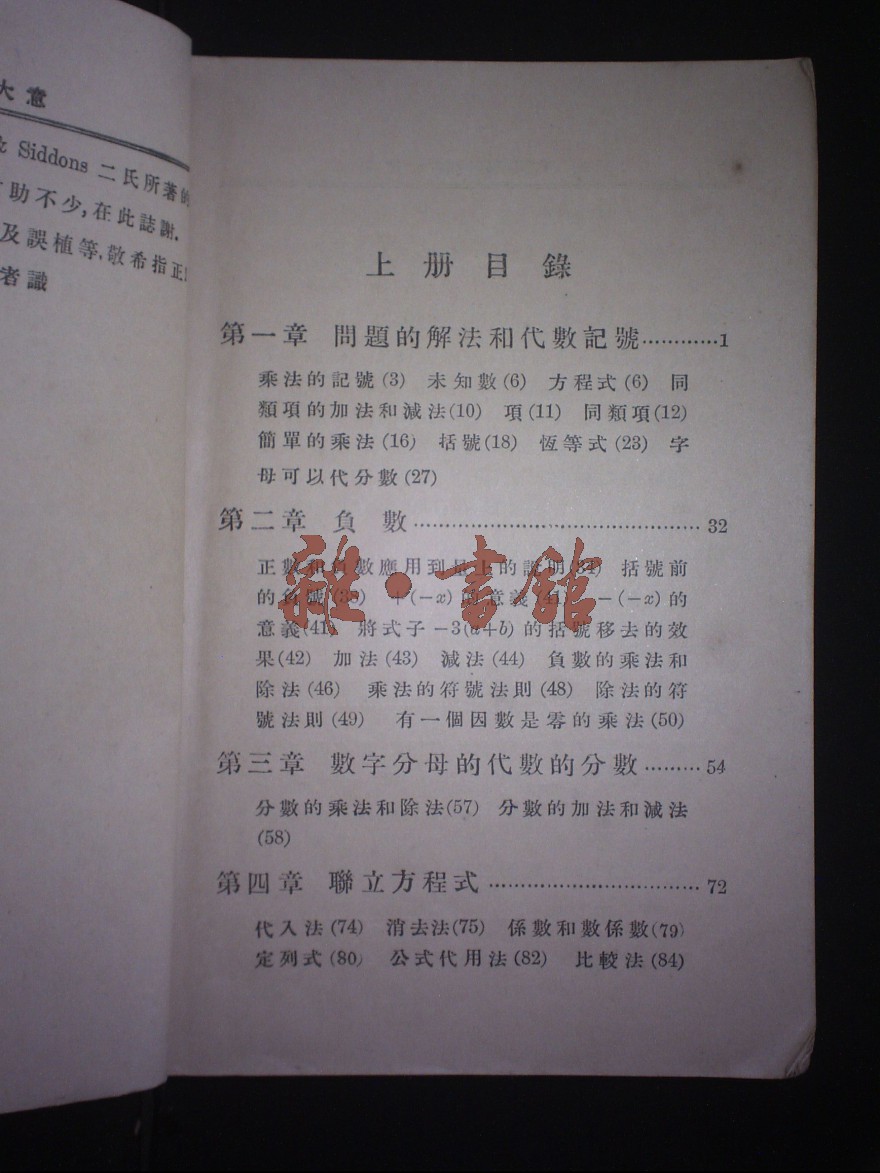 大意
Siddons 二氏所著的
助不少,在此誌謝.
及誤植等,敬希指正!
者識
上册目錄
第一章 問題的解法和代數記號............1
乘法的記號(3) 未知數(6) 方程式(6) 同
類項的加法和減法(10) 項(11) 同類項(12)
簡單的乘法(16) 括號(18) 恆等式(23) 字
母可以代分數(27)
第二章 負數............32
正數和負數應用到量上的証明(34) 括號前
的負號(38) +(-x)的意義(41) -(-x)的
意義(41) 將式子-3(a+b)的括號移去的效
果(42) 加法(43) 減法(44) 負數的乘法和
除法(46) 乘法的符號法則(48) 除法的符
號法則(49) 有一個因數是零的乘法(50)
第三章 數字分母的代數的分數.........54
分數的乘法和除法(57) 分數的加法和減法
(58)
第四章 聯立方程式............72
代入法(74) 消去法(75) 係數和數係數(79)
定列式(80) 公式代用法(82) 比較法(84)
雜·書館